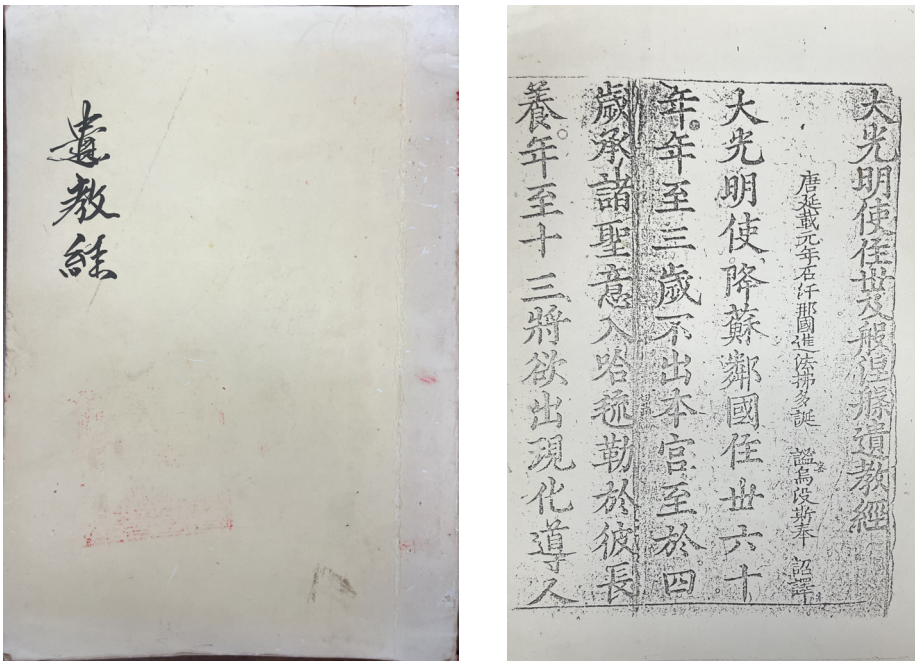 遺教経
大光明使住世及般涅槃遺教經
唐延載元年石汗那國進拂多誕 謐烏沒斯奉 詔譯
大光明使降蘇鄰國住世六十
年年至三歲不出本宮至於四
歲承諸聖意入哈勒於彼長
養年至十三將欲出現化導人